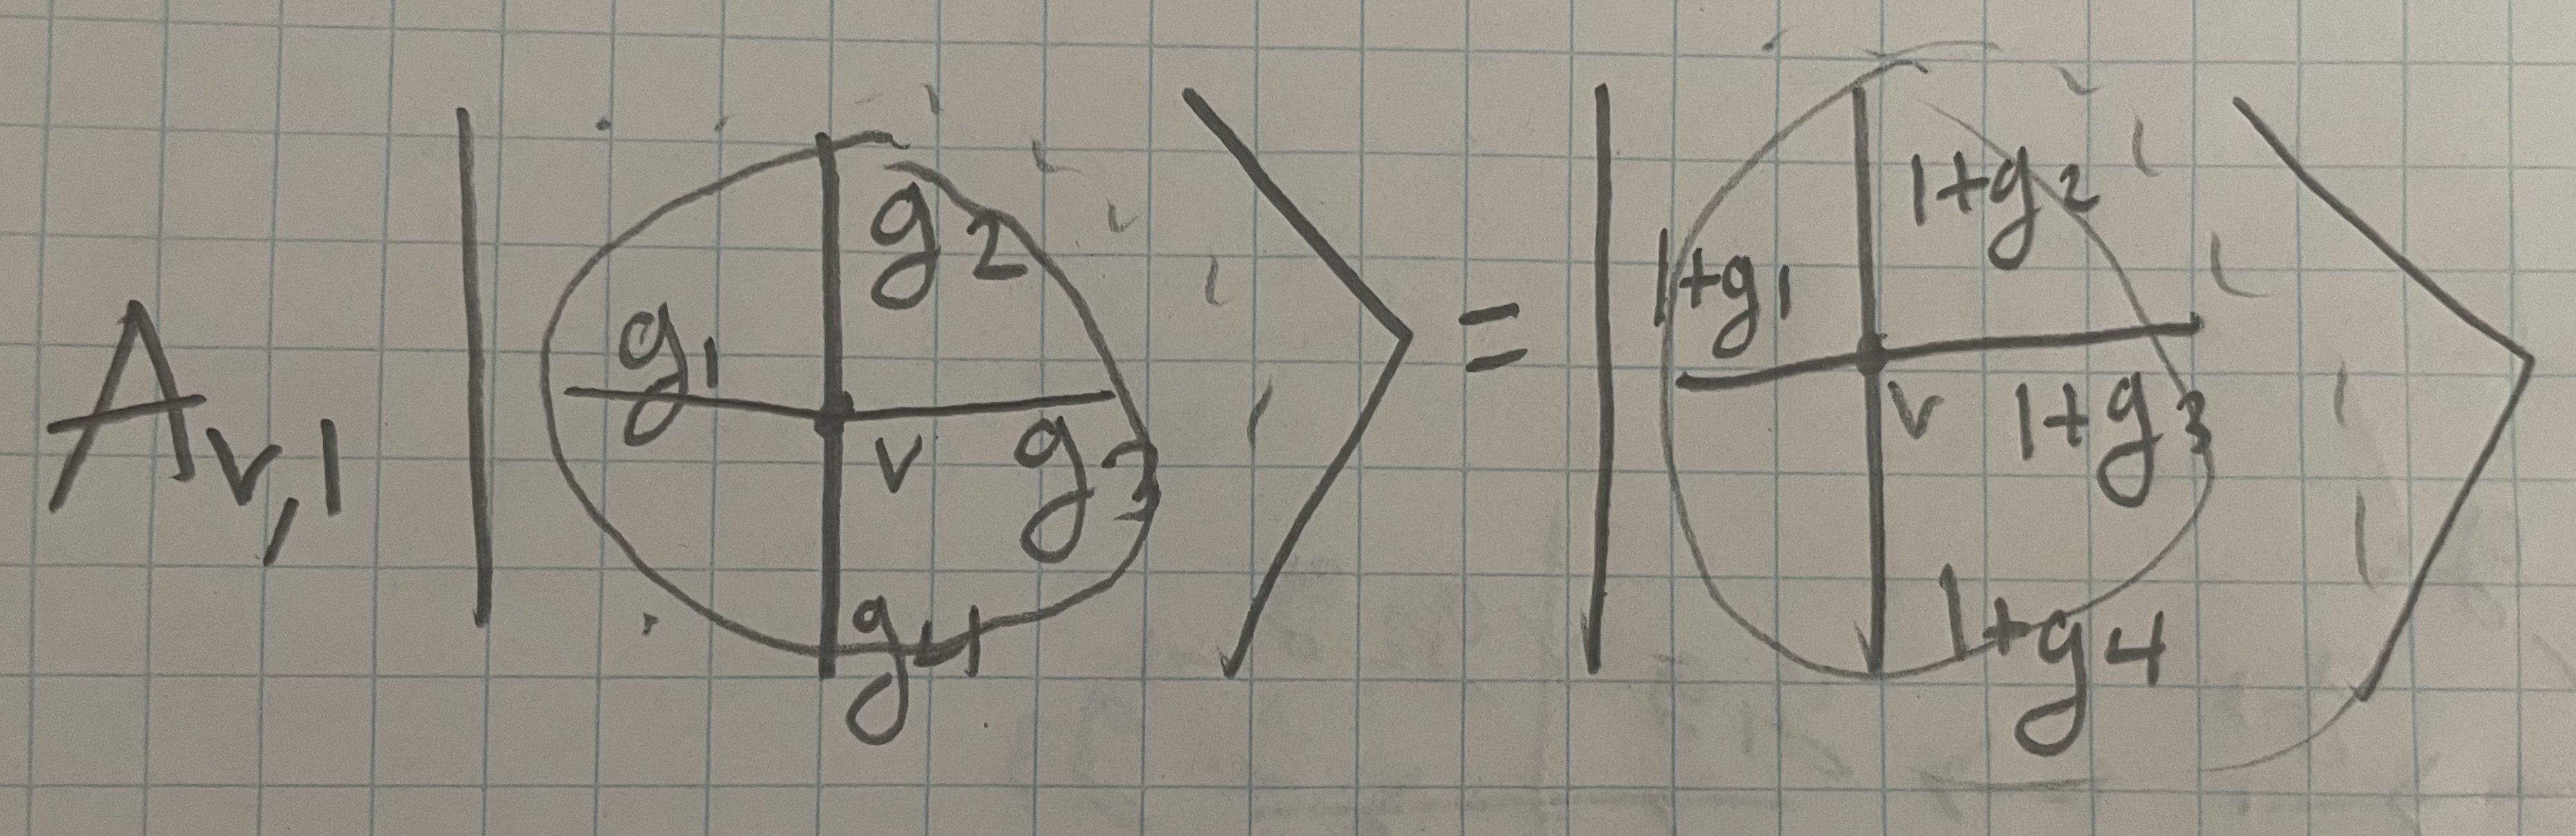 A_{v,1} | g_1 g_2 v g_3 g_4 ⟩ = | 1+g_1 1+g_2 v 1+g_3 1+g_4 ⟩